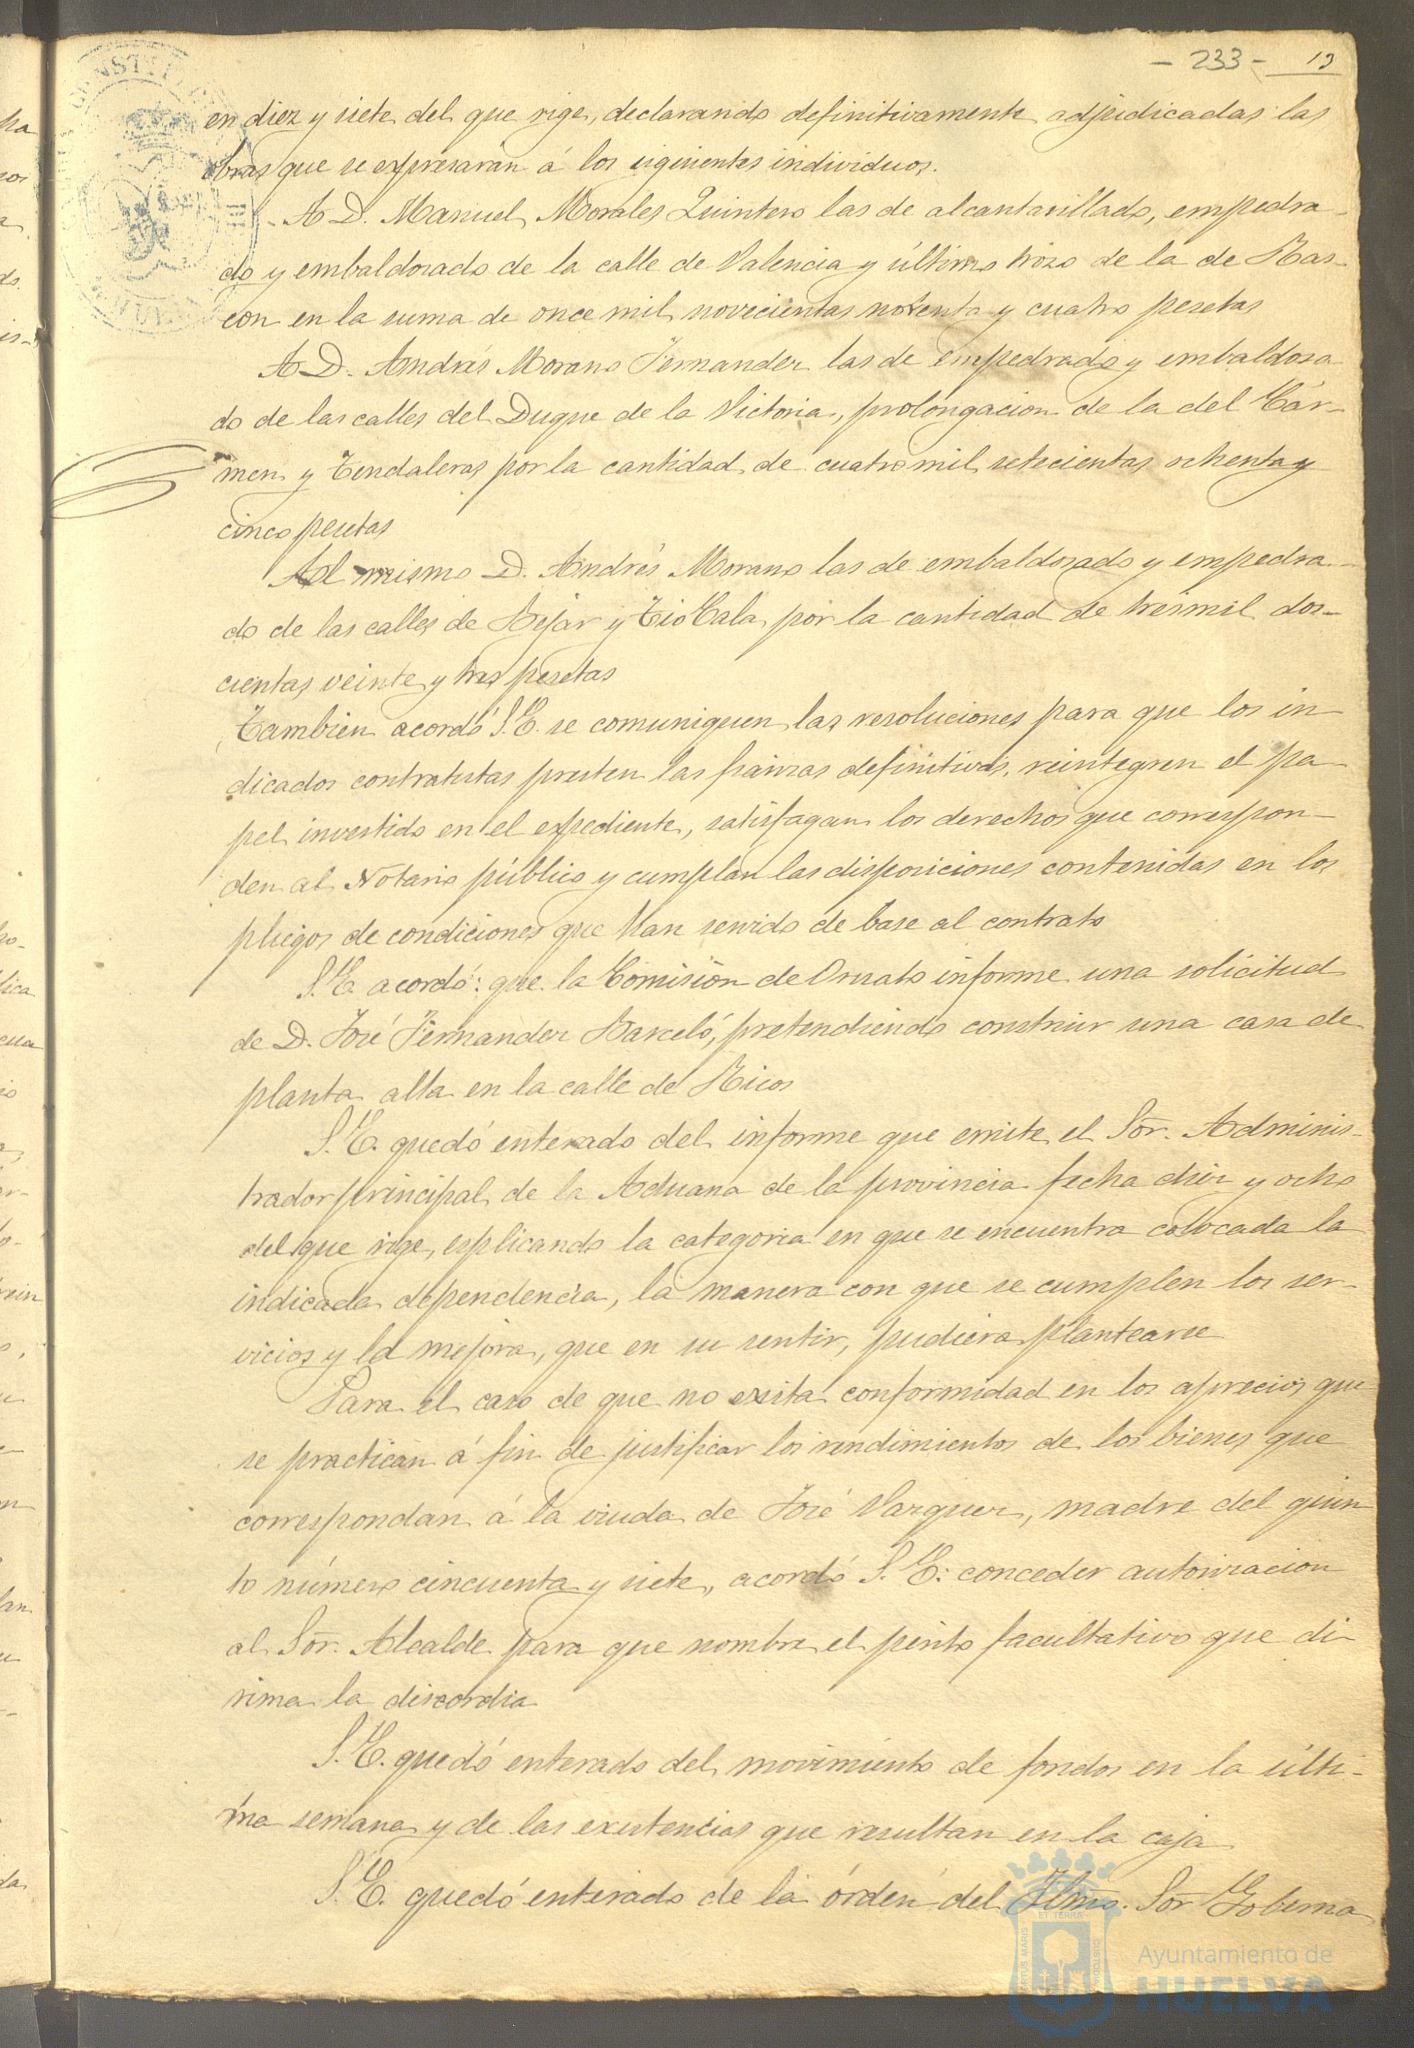 - 233 - 13
en diez y siete del que rige, declarando definitivamente adjudicadas las
obras que se expresarán á los siguientes individuos.
A D. Manuel Morales Quintero las de alcantarillado, empedra-
do y embaldosado de la calle de Valencia y último trozo de la de Ras-
con en la suma de once mil novecientas noventa y cuatro pesetas
A D. Andrés Morano Fernandez las de empedrado y embaldosa
do de las calles del Duque de la Victoria, prolongacion de la del Cár-
men y Tendaleras por la cantidad de cuatro mil setecientas ochenta y
cinco pesetas
Al mismo D. Andrés Morano las de embaldosado y empedra-
do de las calles de Bejar y Tio Cala por la cantidad de tres mil dos-
cientas veinte y tres pesetas
Tambien acordó S.E. se comuniquen las resoluciones para que los in-
dicados contratistas presten las fianzas definitivas, reintegren el pa-
pel invertido en el expediente, satisfagan los derechos que correspon-
den al Notario público y cumplan las disposiciones contenidas en los
pliegos de condiciones que han servido de base al contrato
S.E. acordó: que la Comisión de Ornato informe una solicitud
de D. José Fernandez Barceló, pretendiendo construir una casa de
planta alta en la calle de Ricos
S.E. quedó enterado del informe que emite el Sor. Adminis-
trador principal de la Aduana de la provincia fecha diez y ocho
del que rige, esplicando la categoria en que se encuentra colocada la
indicada dependencia, la manera con que se cumplen los ser-
vicios y la mejora, que en su sentir, pudiera plantearse
Para el caso de que no exista conformidad en los aprecios que
se practican á fin de justificar los rendimientos de los bienes que
correspondan á la viuda de José Vazquez, madre del quin
to número cincuenta y siete, acordó S.E: conceder autorizacion
al Sor. Alcalde para que nombre el perito facultativo que di-
rima la discordia
S.E. quedó enterado del movimiento de fondos en la últi-
ma semana y de las existencias que resultan en la caja
S.E. quedó enterado de la órden del Ilmo. Sor Goberna
Ayuntamiento de
HUELVA